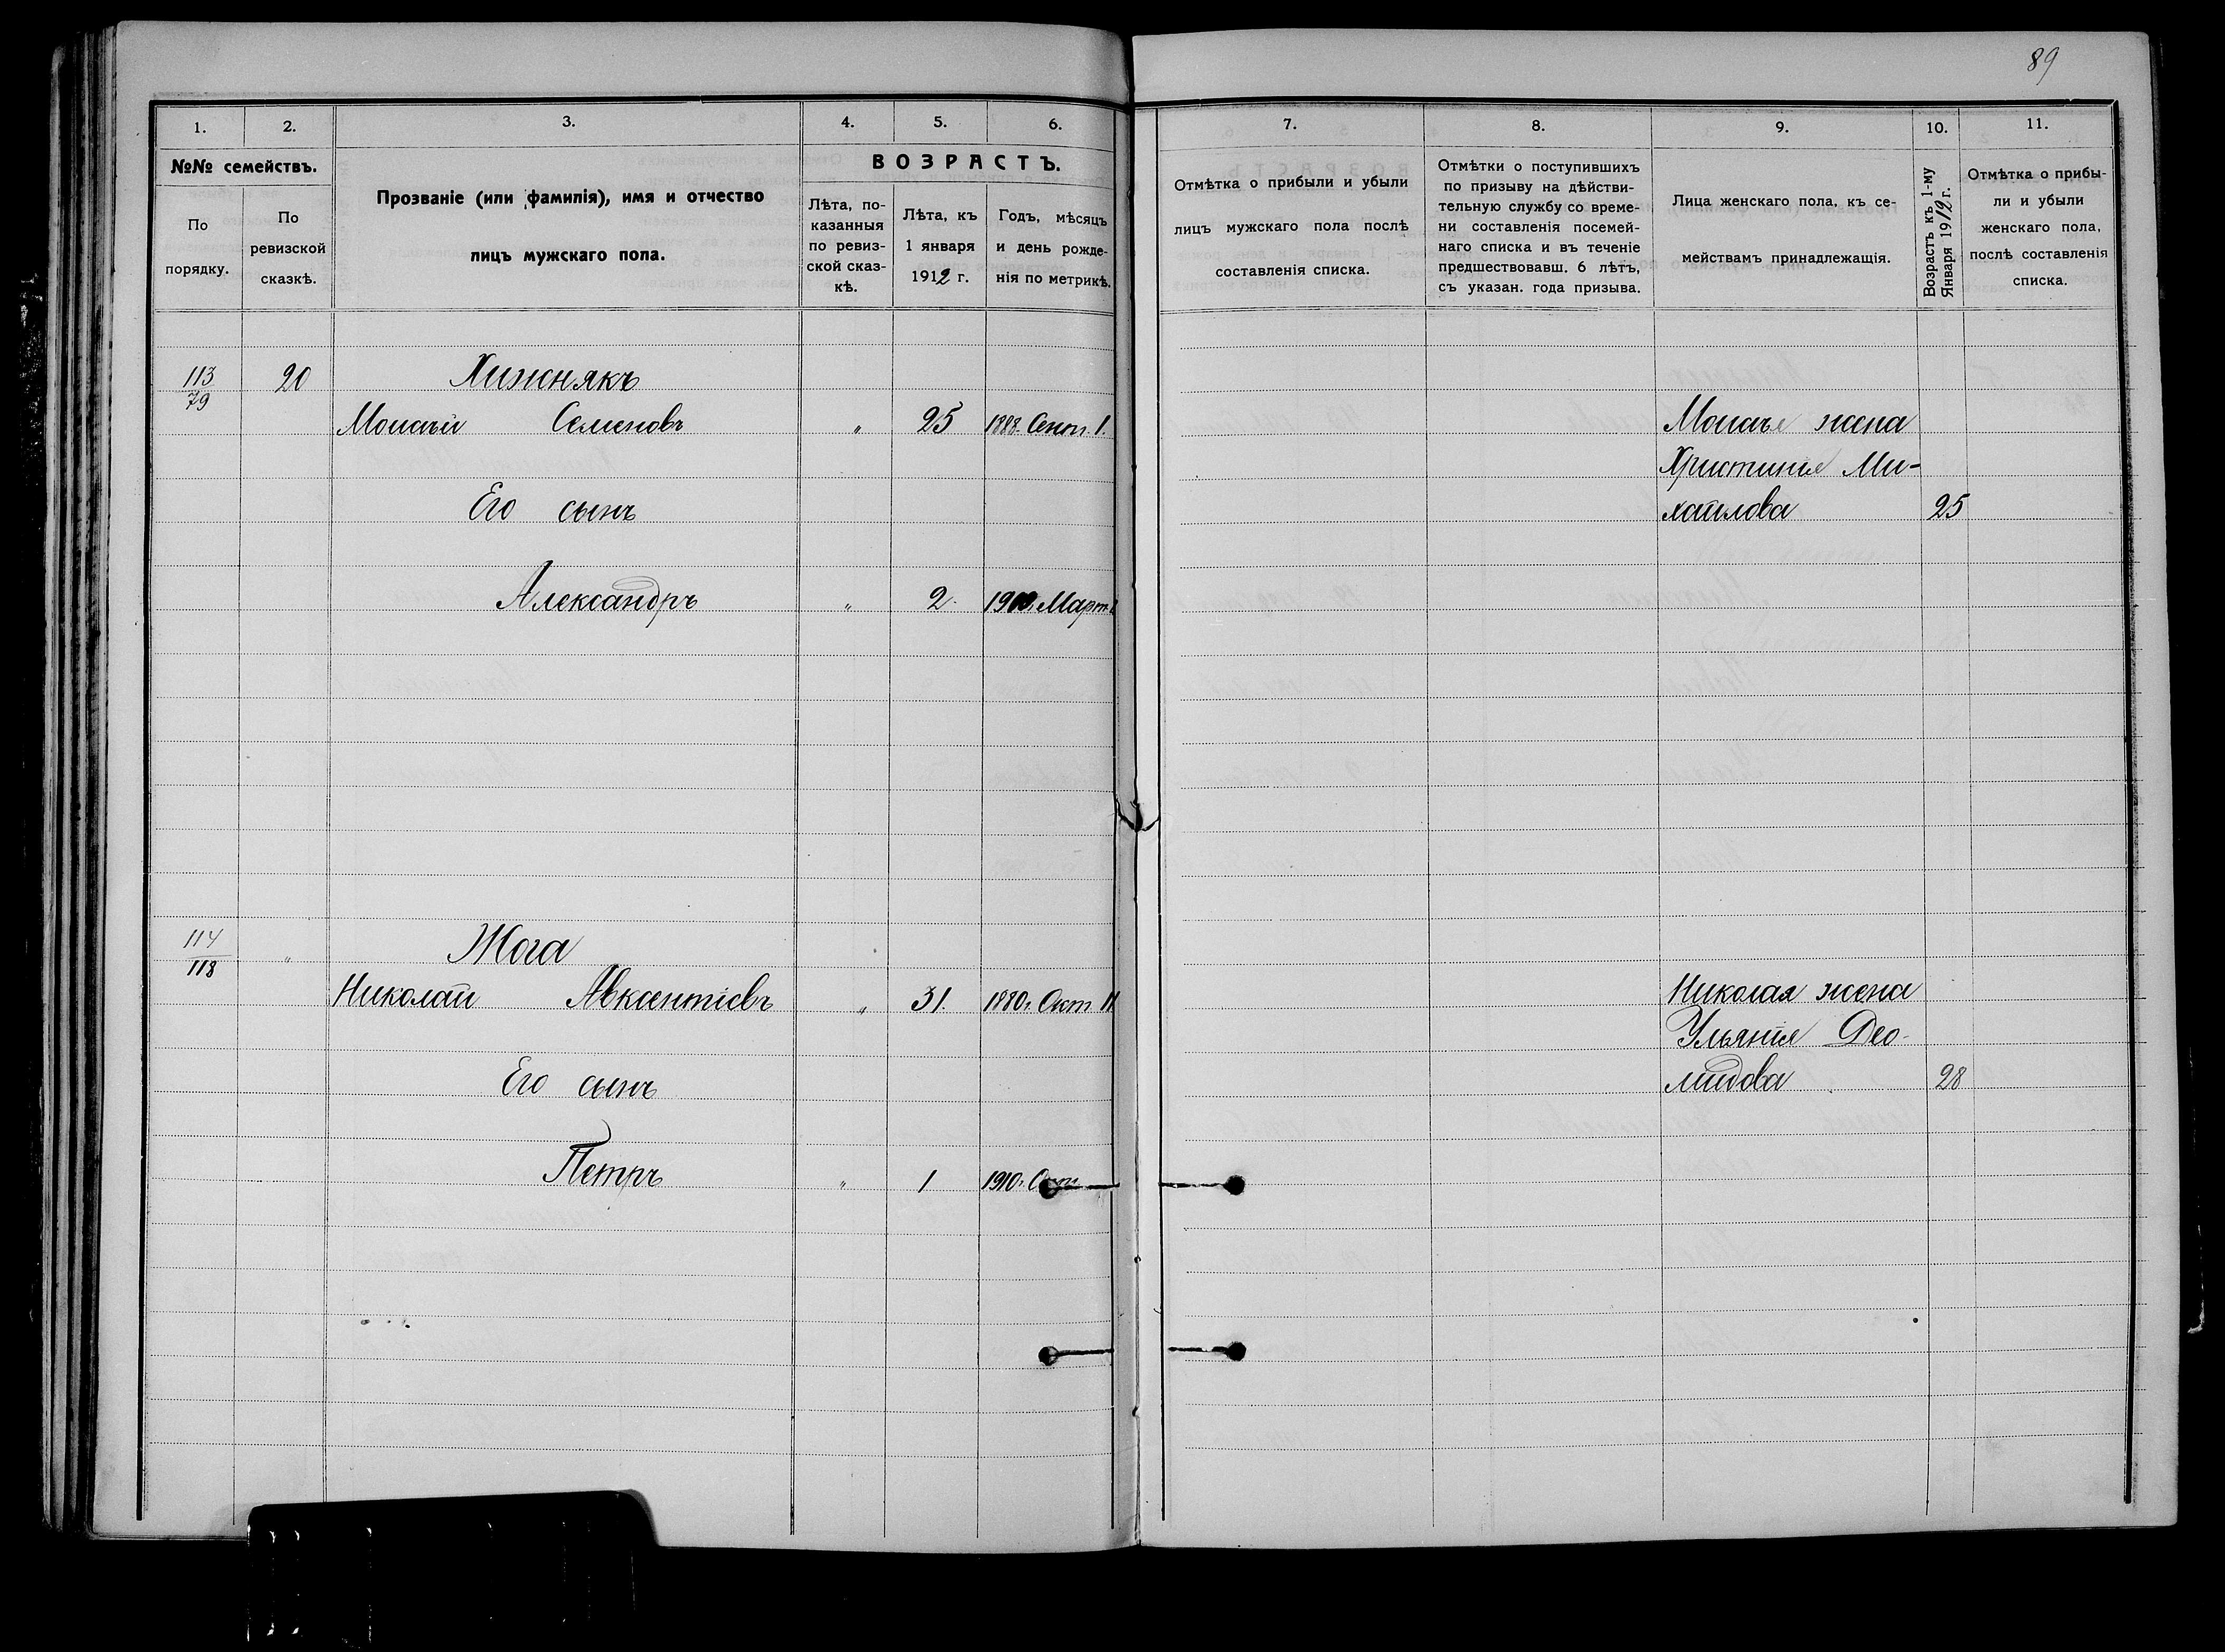 89
1. 2. 3. 4. 5. 6.
№№ семействъ.
По порядку.
По ревизской сказкѣ.
Прозваніе (или фамилія), имя и отчество
лицъ мужскаго пола.
ВОЗРАСТЪ.
Лѣта, по-
казанныя
по ревиз-
ской сказ-
кѣ.
Лѣта, къ
1 января
1912 г.
Годъ, мѣсяцъ
и день рожде-
нія по метрикѣ.
7. 8. 9. 10. 11.
Отмѣтка о прибыли и убыли
лицъ мужского пола послѣ
составленія списка.
Отмѣтки о поступившихъ
по призыву на дѣйстви-
тельную службу со време-
ни составленія посемей-
наго списка и въ теченіе
предшествовавш. 6 лѣтъ,
съ указан. года призыва.
Лица женскаго пола, къ се-
мействамъ принадлежащія.
Возрастъ къ 1-му
Января 1912 г.
Отмѣтка о прибы-
ли и убыли
женскаго пола,
послѣ составленія
списка.
113 20 Хижнякъ
79
Моисѣй Семеновъ " 25 1888. Сент. 1.
Его сынъ
Александръ " 2. Март.
114 " Жога
118
Николай Авксентіевъ " 31. 1880г. Окт 11
Его сынъ
Петръ " 1 1910г.
Моисѣя жена
Христинія Ми-
хаилова 25
Николая жена
Ульянія Део-
мидова 28